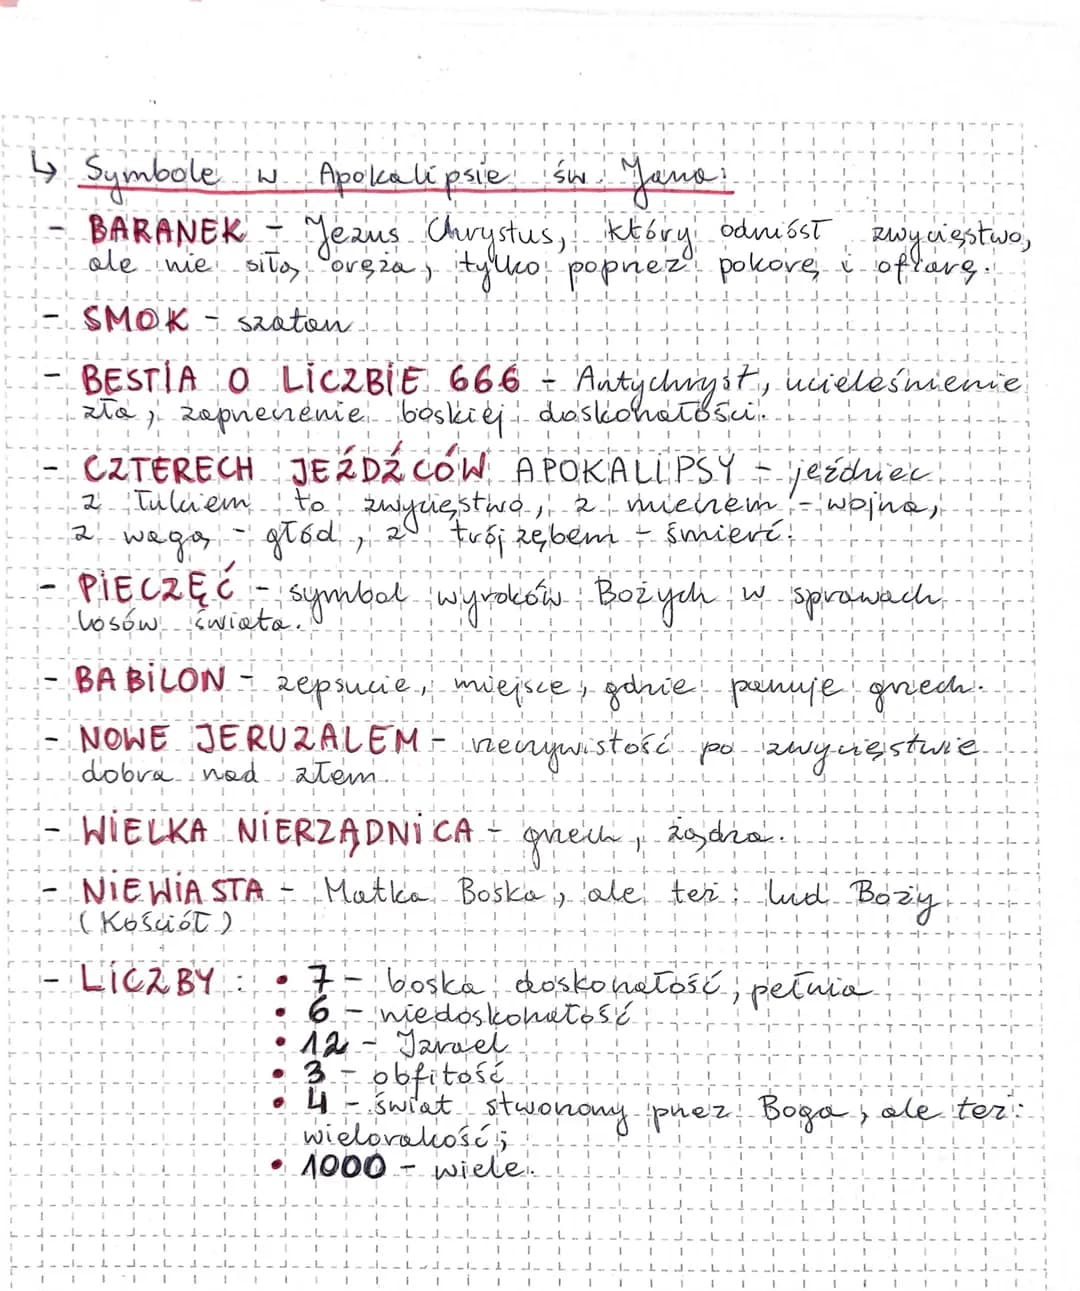 ↳ Symbole w Apokalipsie św. Jana:
- BARANEK - Jezus Chrystus, który odniósł zwycięstwo,
ale nie siłą oręża, tylko poprzez pokorę i ofiarę.
- SMOK - szatan
- BESTIA O LICZBIE 666 - Antychryst, ucieleśnienie
zła, zaprzeczenie boskiej doskonałości.
- CZTERECH JEŹDŹCÓW APOKALIPSY - jeździec
z łukiem to zwycięstwo, z mieczem - wojna,
z wagą - głód, z trójzębem - śmierć.
- PIECZĘĆ - symbol wyroków Bożych w sprawach
losów świata.
- BABILON - zepsucie, miejsce, gdzie panuje grzech.
- NOWE JERUZALEM - rzeczywistość po zwycięstwie
dobra nad złem.
- WIELKA NIERZĄDNICA - grzech, żądza.
- NIEWIASTA - Matka Boska, ale też: lud Boży
(Kościół)
- LICZBY: • 7 - boska doskonałość, pełnia
• 6 - niedoskonałość
• 12 - Izrael
• 3 - obfitość
• 4 - świat stworzony przez Boga, ale też:
wielorakość;
• 1000 - wiele.